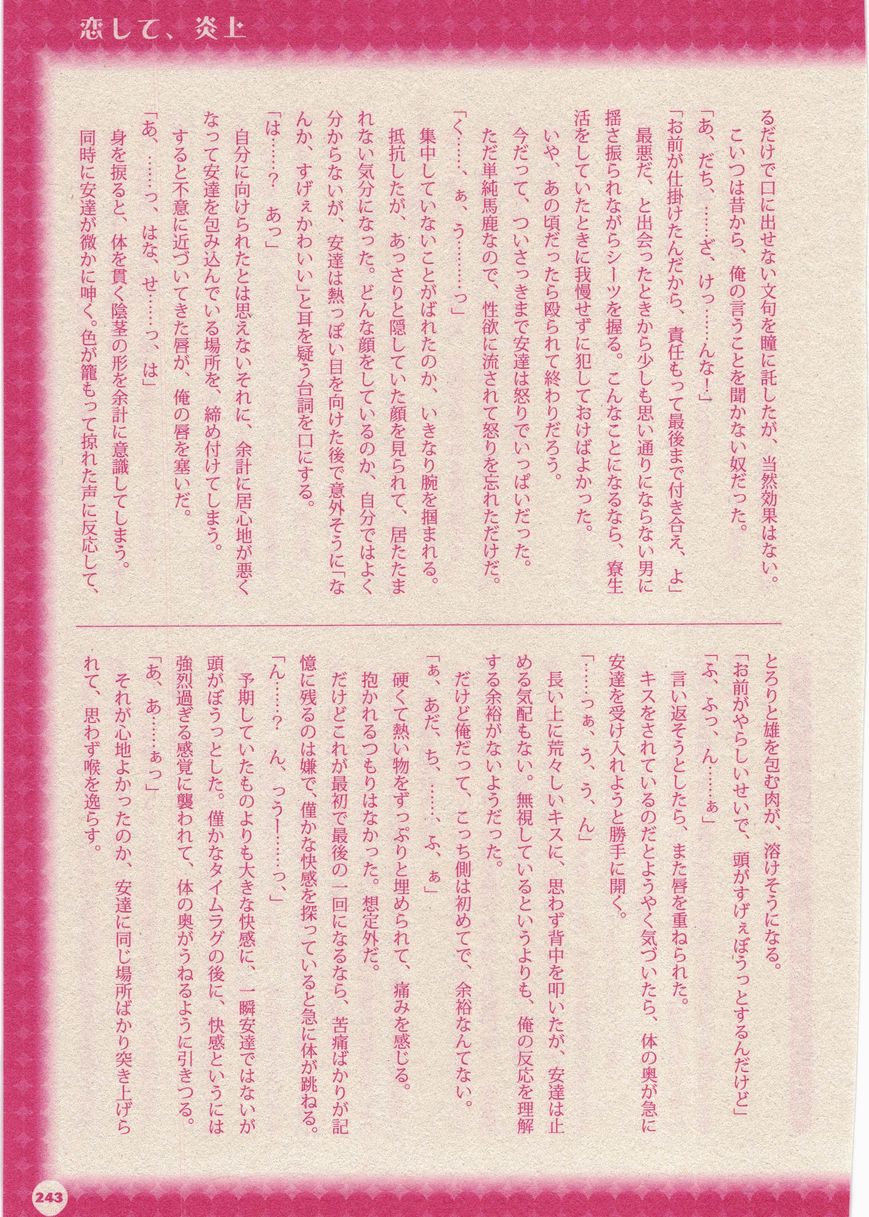 恋して、炎上
るだけで口に出せない文句を瞳に託したが、当然効果はない。
こいつは昔から、俺の言うことを聞かない奴だった。
「あ、だち、……ざ、けっ……んな！」
「お前が仕掛けたんだから、責任もって最後まで付き合え、よ」
最悪だ、と出会ったときから少しも思い通りにならない男に
揺さ振られながらシーツを握る。こんなことになるなら、寮生
活をしていたときに我慢せずに犯しておけばよかった。
いや、あの頃だったら殴られて終わりだろう。
今だって、ついさっきまで安達は怒りでいっぱいだった。
ただ単純馬鹿なので、性欲に流されて怒りを忘れただけだ。
「く……、ぁ、う………っ」
集中していないことがばれたのか、いきなり腕を掴まれる。
抵抗したが、あっさりと隠していた顔を見られて、居たたま
れない気分になった。どんな顔をしているのか、自分ではよく
分からないが、安達は熱っぽい目を向けた後で意外そうに「な
んか、すげぇかわいい」と耳を疑う台詞を口にする。
「は……？　あっ」
自分に向けられたとは思えないそれに、余計に居心地が悪く
なって安達を包み込んでいる場所を、締め付けてしまう。
すると不意に近づいてきた唇が、俺の唇を塞いだ。
「あ、……っ、はな、せ……っ、は」
身を捩ると、体を貫く陰茎の形を余計に意識してしまう。
同時に安達が微かに呻く。色が籠もって掠れた声に反応して、
とろりと雄を包む肉が、溶けそうになる。
「お前がやらしいせいで、頭がすげぇぼうっとするんだけど」
「ふ、ふっ、ん……ぁ」
言い返そうとしたら、また唇を重ねられた。
キスをされているのだとようやく気づいたら、体の奥が急に
安達を受け入れようと勝手に開く。
「……っぁ、う、う、ん」
長い上に荒々しいキスに、思わず背中を叩いたが、安達は止
める気配もない。無視しているというよりも、俺の反応を理解
する余裕がないようだった。
だけど俺だって、こっち側は初めてで、余裕なんてない。
「ぁ、あだ、ち、……、ふ、ぁ」
硬くて熱い物をずっぷりと埋められて、痛みを感じる。
抱かれるつもりはなかった。想定外だ。
だけどこれが最初で最後の一回になるなら、苦痛ばかりが記
憶に残るのは嫌で、僅かな快感を探っていると急に体が跳ねる。
「ん……？　ん、っうー……っ、」
予期していたものよりも大きな快感に、一瞬安達ではないが
頭がぼうっとした。僅かなタイムラグの後に、快感というには
強烈過ぎる感覚に襲われて、体の奥がうねるように引きつる。
「あ、あ……ぁっ」
それが心地よかったのか、安達に同じ場所ばかり突き上げら
れて、思わず喉を逸らす。
243